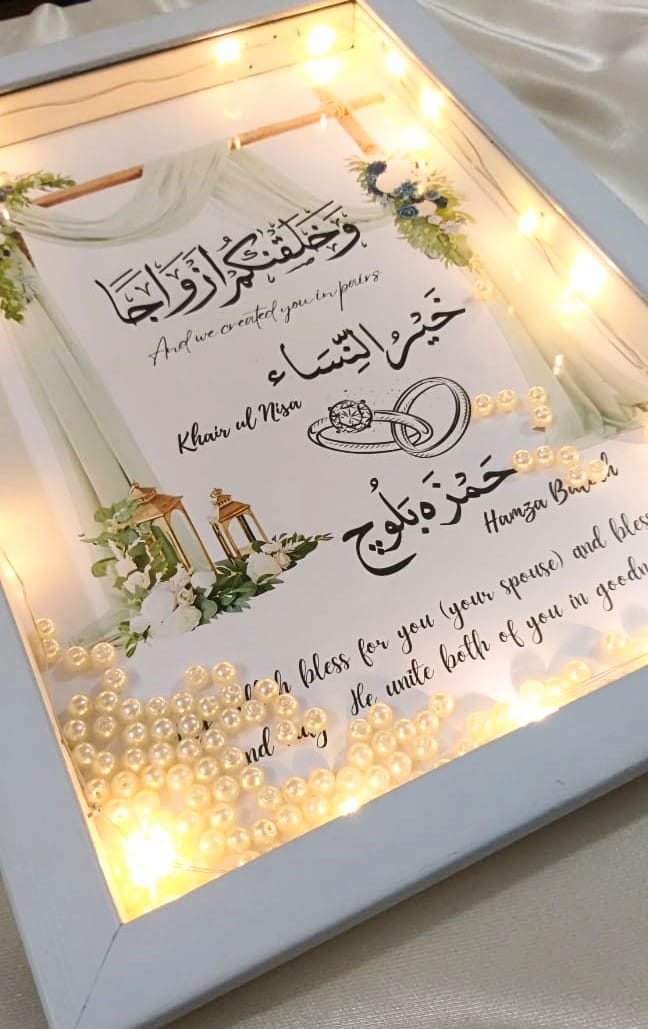 وَخَلَقْنٰكُمْ اَزْوَاجًا
And we created you in pairs
خَيْرُ النِّسَاء
Khair ul Nisa
حَمْزَه بَلُوچ
Hamza
bless for you (your spouse) and bless
He unite both of you in